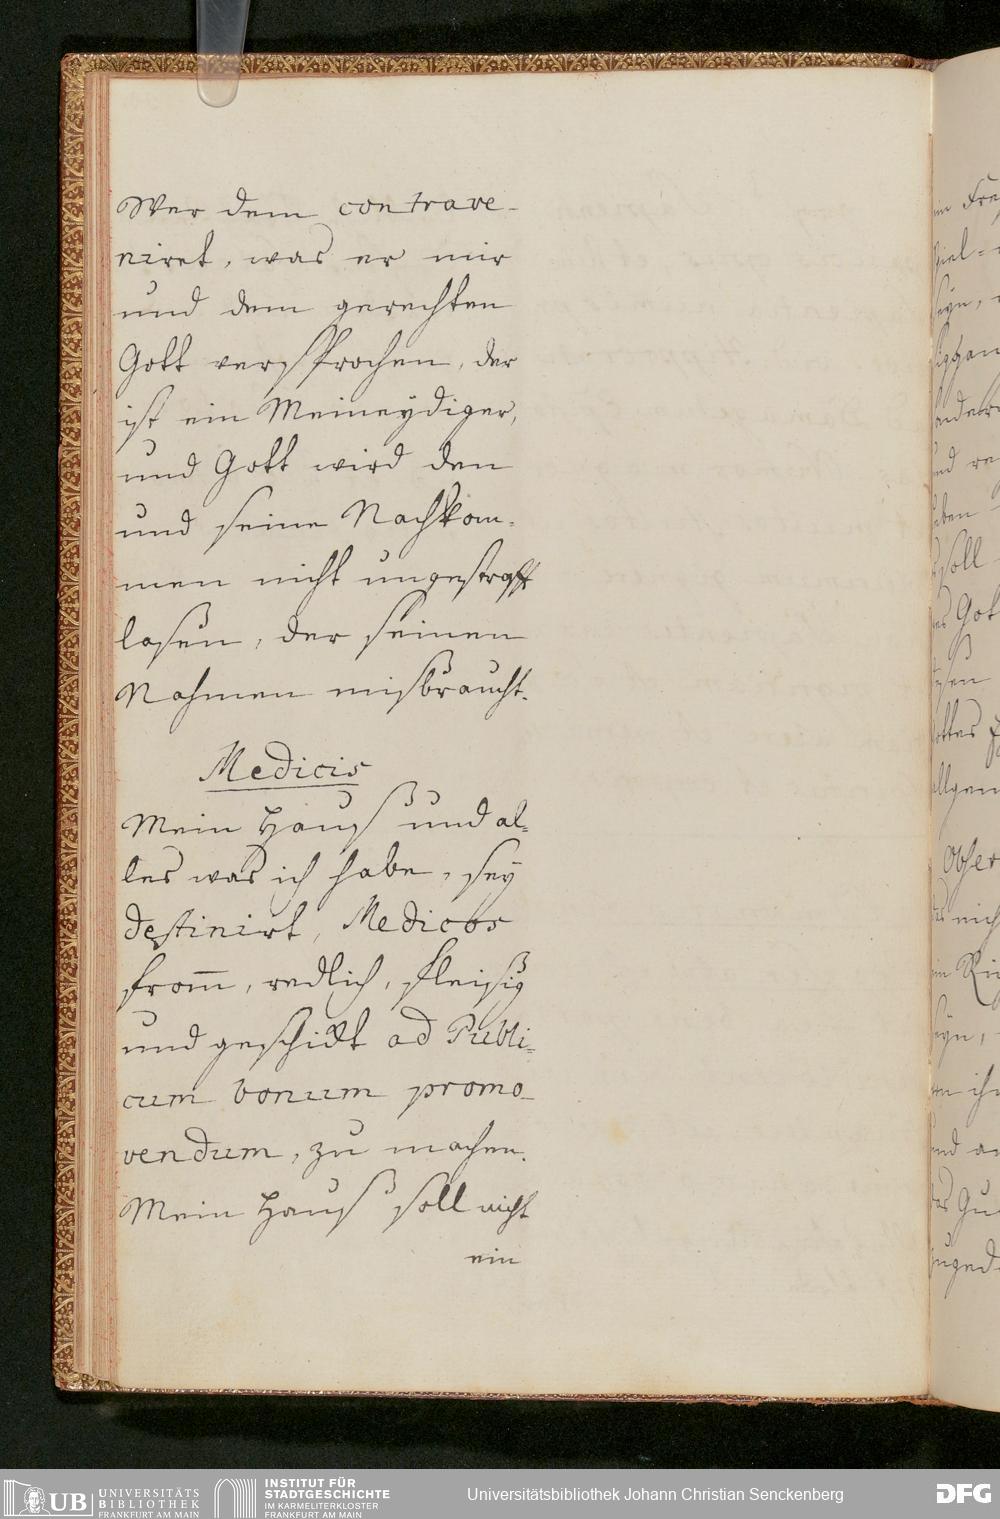 Wer dem contrave-
niret, was er mir
und dem gerechten
Gott versprochen, der
ist ein Meineydiger,
und Gott wird den
und seine Nachkom-
men nicht ungestrafft
laßen, der seinen
Nahmen misbraucht.
Medicis
Mein Hauß und al-
les was ich habe, sey
destinirt, Medicos
from̅, redlich, fleißig
und geschickt ad Publi-
cum bonum promo-
vendum, zu machen.
Mein Hauß soll nicht
ein
UB UNIVERSITÄTS
BIBLIOTHEK
FRANKFURT AM MAIN
INSTITUT FÜR
STADTGESCHICHTE
IM KARMELITERKLOSTER
FRANKFURT AM MAIN
Universitätsbibliothek Johann Christian Senckenberg
DFG